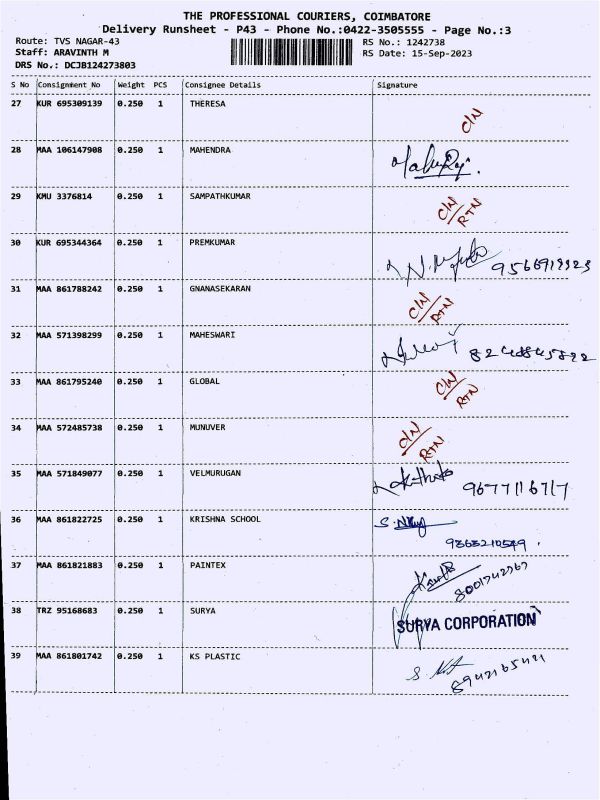 THE PROFESSIONAL COURIERS, COIMBATORE
Delivery Runsheet - P43 - Phone No.:0422-3505555 - Page No.:3
Route: TVS NAGAR-43 RS No.: 1242738
Staff: ARAVINTH M RS Date: 15-Sep-2023
DRS No.: DCJB124273803
S No Consignment No Weight PCS Consignee Details Signature
27 KUR 695309139 0.250 1 THERESA C/N
28 MAA 106147908 0.250 1 MAHENDRA
29 KMU 3376814 0.250 1 SAMPATHKUMAR C/N/RTN
30 KUR 695344364 0.250 1 PREMKUMAR
31 MAA 861788242 0.250 1 GNANASEKARAN C/N/RTN
32 MAA 571398299 0.250 1 MAHESWARI
33 MAA 861795240 0.250 1 GLOBAL C/N/RTN
34 MAA 572485738 0.250 1 MUNUVER C/N/RTN
35 MAA 571849077 0.250 1 VELMURUGAN 9677116717
36 MAA 861822725 0.250 1 KRISHNA SCHOOL
37 MAA 861821883 0.250 1 PAINTEX
38 TRZ 95168683 0.250 1 SURYA SURYA CORPORATION
39 MAA 861801742 0.250 1 KS PLASTIC